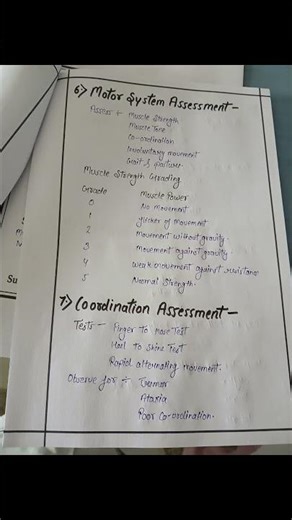 6) Motor System Assessment -
Assess ÷ Muscle Strength
Muscle Tone
Co-ordination
Involuntary movement
Gait & posture
Muscle Strength Grading
Grade Muscle Power
0 No movement
1 flicker of movement
2 Movement without gravity
3 Movement against gravity
4 Weak movement against resistance
5 Normal Strength.
7) Coordination Assessment -
Tests - Finger To Nose Test
Heel To Shine Test
Rapid alternating movement.
Observe for ÷ Tremor
Ataxia
Poor Co-ordination.
Su